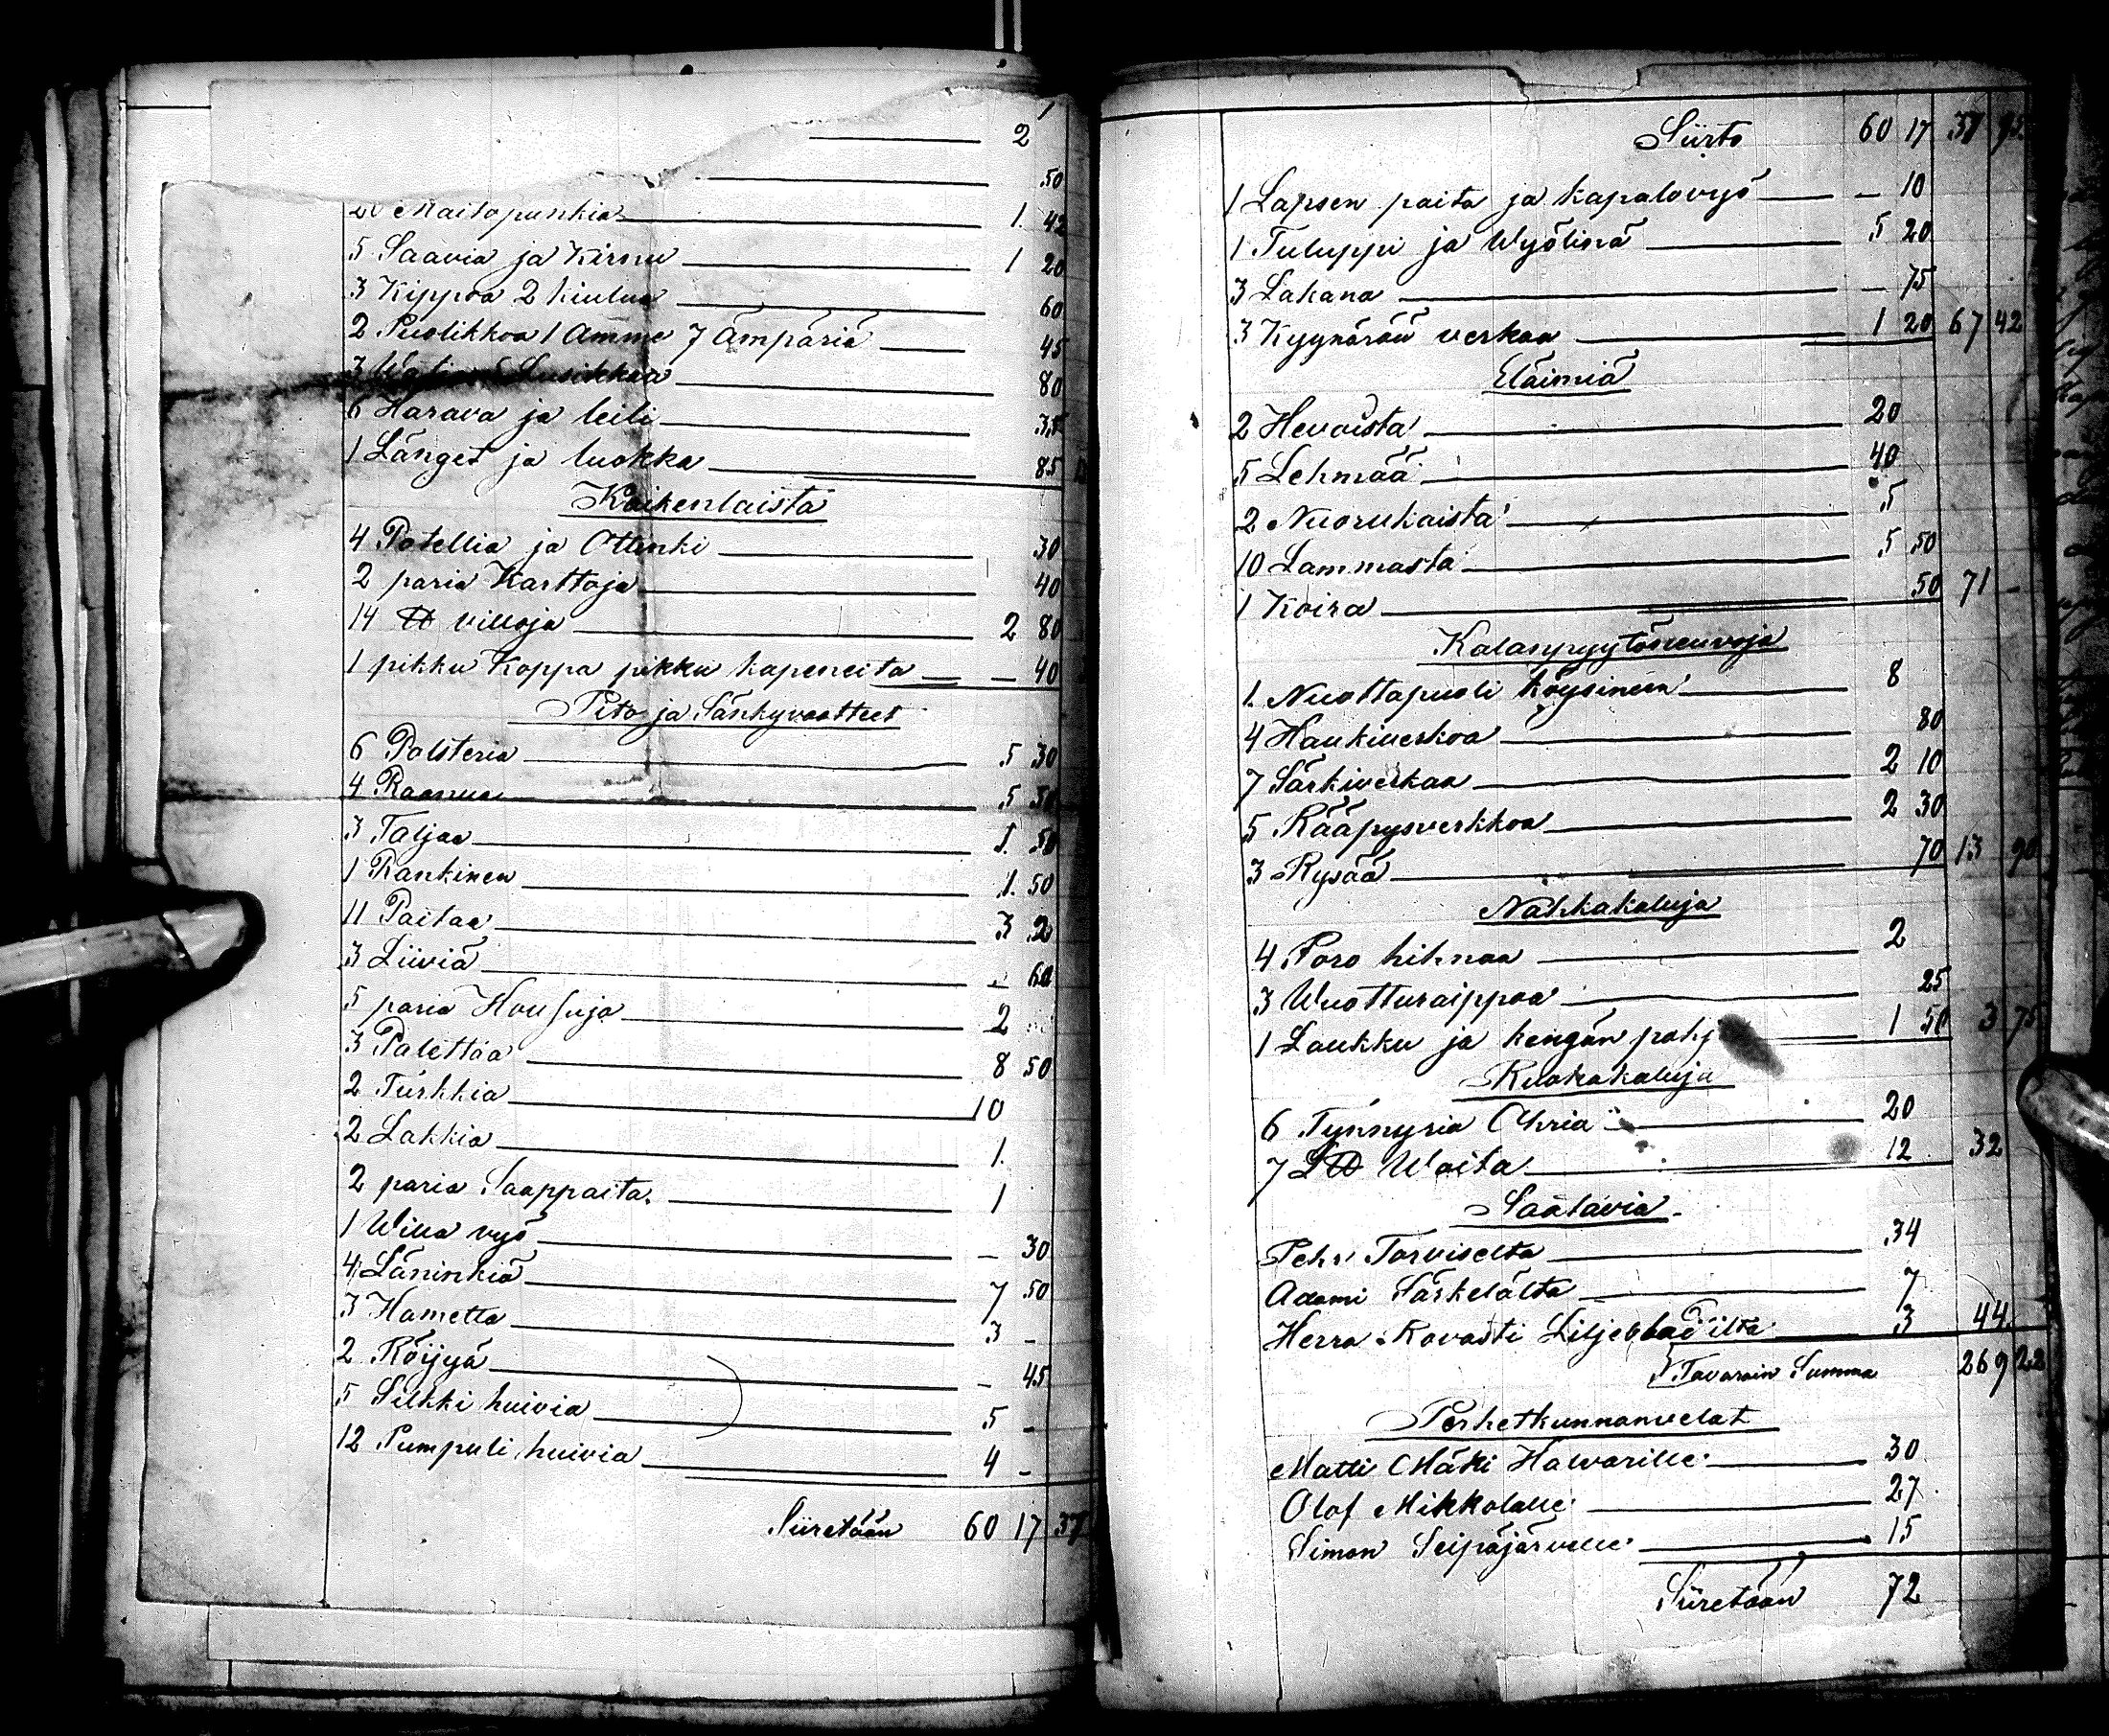 1
2
50
20 Maitopunkia 1. 42
5 Saavia ja Kirnu 1 20
3 Kippoa 2 kiulua 60
2 Puolikkoa 1 Amme 7 Ämpäriä 45
3 Lusikkaa 80
6 Harava ja leili 35
1 Länget ja luokka 85
Kaikenlaista
4 Potellia ja Ottinki 30
2 paria Karttoja 40
14 ℔ villoja 2 80
1 pikku Koppa pikku kapeneita — 40
Pito ja Sänkyvaatteet
6 Polsteria 5 30
4 Raanua 5 50
3 Taljaa 1. 50
1 Rankinen 1. 50
11 Paitaa 3 20
3 Liiviä — 60
5 paria Housuja 2
3 Palettaa 8 50
2 Turkkia 10
2 Lakkia 1.
2 paria Saappaita. 1
1 Willa vyö — 30
4 Läninkiä 7 50
3 Hametta 3 —
2 Röijyä — 45
5 Silkki huivia 5 —
12 Pumpuli huivia 4 —
Siiretään 60 17 37
Siirto 60 17 37 95
1 Lapsen paita ja kapalovyö — 10
1 Tuluppi ja Wyöliinä 5 20
3 Lakana — 75
3 Kyynärää verkaa 1 20 67 42
Eläimiä
2 Hevoista 20
5 Lehmää 40
2 Nuorukaista 5
10 Lammasta 5 50
1 Koira 50 71 —
Kalanpyytöneuvoja
1. Nuottapuoli köysineen 8
4 Haukiverkoa 80
7 Särkiverkaa 2 10
5 Rääpysverkkoa 2 30
3 Rysää 70 13 90
Nahkakaluja
4 Poro hihnaa 2
3 Wuotturaippaa 25
1 Laukku ja kengän pohj 1 50 3 75
Ruokakaluja
6 Tynnyria Ohria 20
7 L℔ Woita 12 32
Saatavia
Pehr Torviselta 34
Adami Särkelältä 7
Herra Rovasti Liljebladilta 3 44
Tavarain Summa 269 22
Perhetkunnanvelat
Matti Mäki Halvarille 30
Olof Mikkolalle 27
Simon Seipäjärvelle 15
Siiretään 72